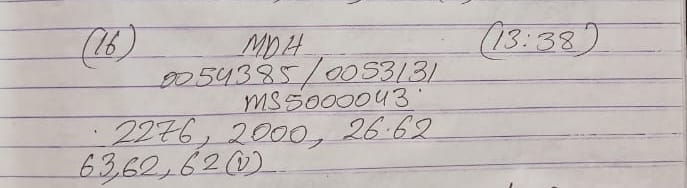 (16) MDH (13:38)
0054385/0053131
MS5000043
2276, 2000, 26.62
63,62, 62(V)